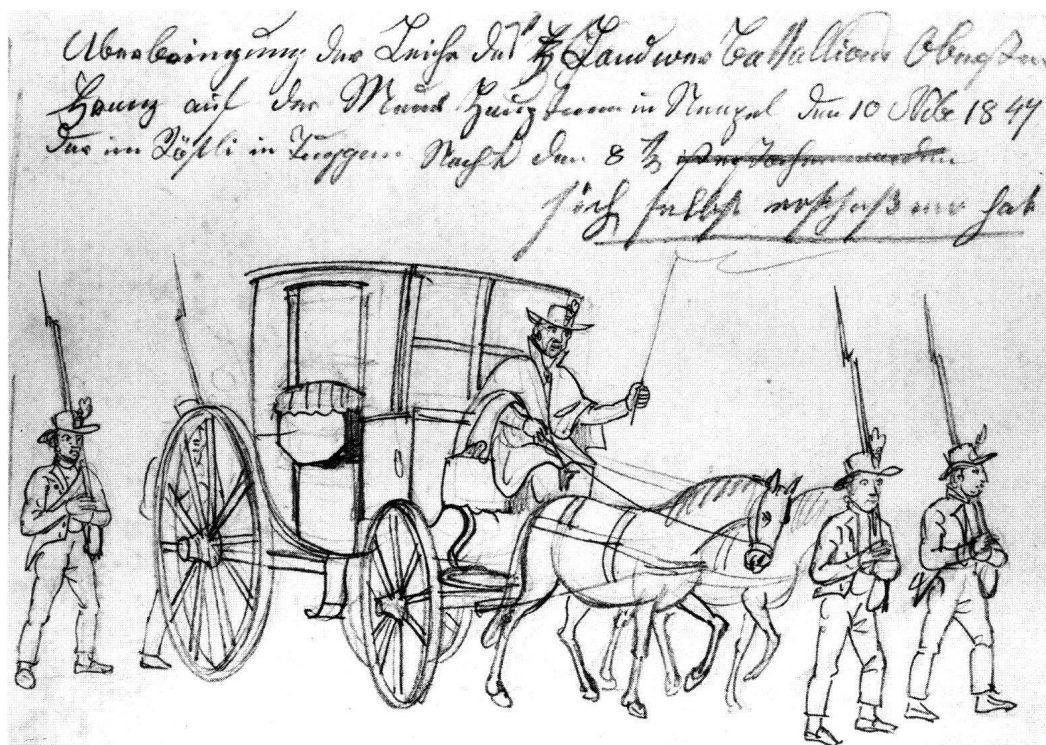 Überbringung der Leiche des Landwer Battallions Obersten
auf der March Hauptman in Neapel den 10 Nvb 1847
der im Rössli in Tuggen Nacht den 8
sich selbst erschossen hat